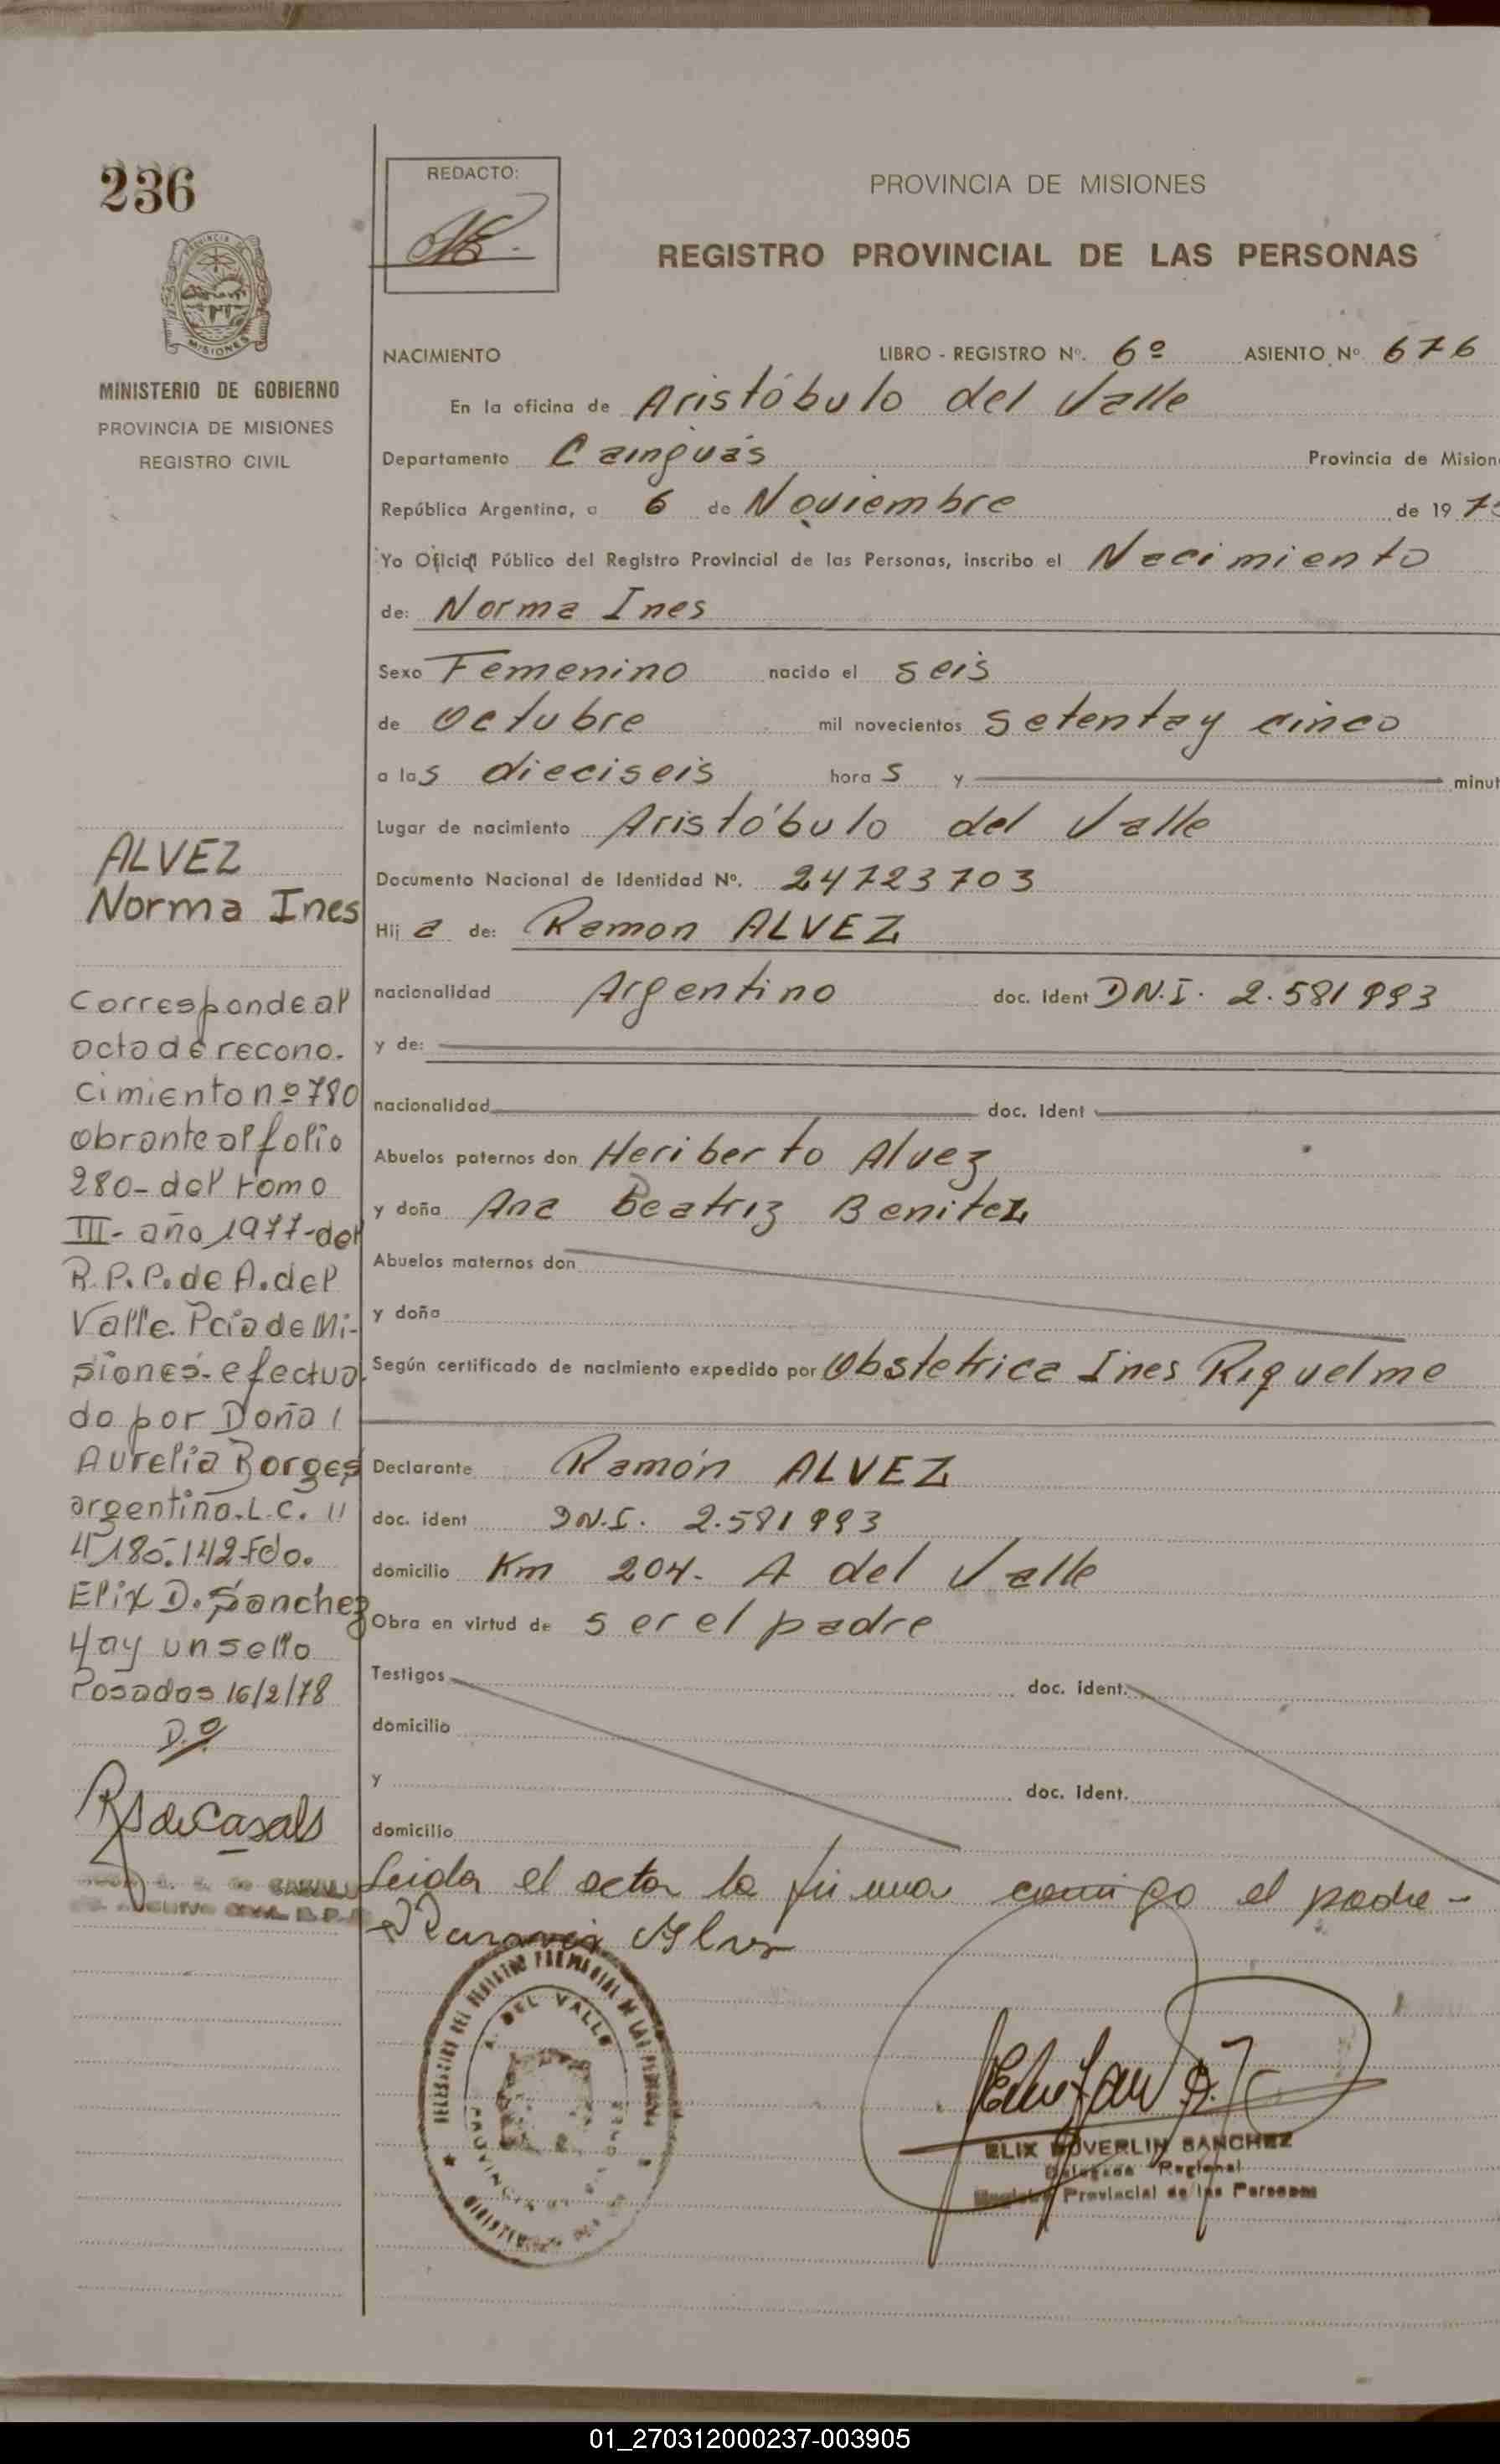 236
REDACTO:
PROVINCIA DE MISIONES
REGISTRO PROVINCIAL DE LAS PERSONAS
PROVINCIA DE
MISIONES
MINISTERIO DE GOBIERNO
PROVINCIA DE MISIONES
REGISTRO CIVIL
NACIMIENTO LIBRO - REGISTRO Nº. 6º ASIENTO Nº 676
En la oficina de Aristóbulo del Valle
Departamento Cainguás Provincia de Mision
República Argentina, a 6 de Noviembre de 19 7
Yo Oficial Público del Registro Provincial de las Personas, inscribo el Nacimiento
de: Norma Ines
Sexo Femenino nacido el seis
de Octubre mil novecientos setenta y cinco
a las dieciseis horas y minut
Lugar de nacimiento Aristóbulo del Valle
Documento Nacional de Identidad Nº. 24723703
Hija de: Ramon ALVEZ
nacionalidad Argentino doc. ident D.N.I. 2.581993
y de:
nacionalidad doc. ident
Abuelos paternos don Heriberto Alvez
y doña Ana Beatriz Benitez
Abuelos maternos don
y doña
Según certificado de nacimiento expedido por Obstetrica Ines Riquelme
Declarante Ramón ALVEZ
doc. ident D.N.I. 2.581993
domicilio Km 204. A del Valle
Obra en virtud de ser el padre
Testigos doc. ident.
domicilio
y doc. ident.
domicilio
Leida el acta la firma conmigo el padre -
Ramon Alvez
ALVEZ
Norma Ines
Corresponde al
acta de recono-
cimiento nº 780
obrante al folio
280- del tomo
III- año 1977- del
R.P.P. de A. del
Valle. Pcia de Mi-
siones- efectua-
do por Doña
Aurelia Borges
argentina. L.C.
4.185.142 Fdo.
Elix D. Sanchez
Hay un sello
Posadas 16/2/78
RS de Casals
A. DEL VALLE
ELIX DOVERLIN SANCHEZ
Delegado Regional
Registro Provincial de las Personas
01_270312000237-003905